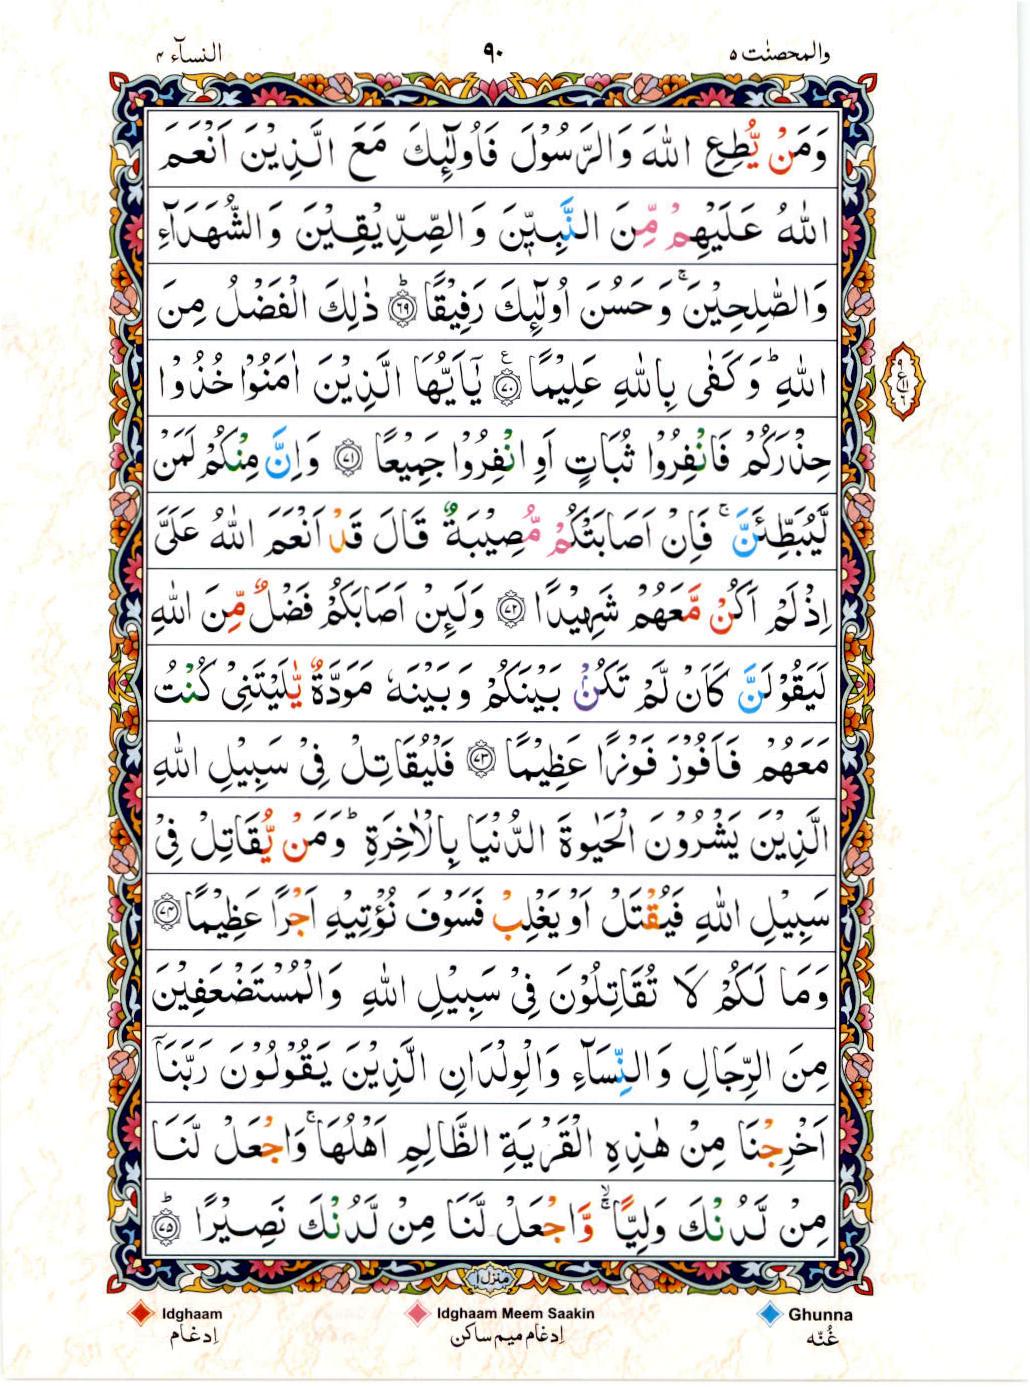 والمحصنٰت ۵
۹۰
النسآء ۴
وَمَنْ يُّطِعِ اللّٰهَ وَالرَّسُوْلَ فَاُولٰٓئِكَ مَعَ الَّذِيْنَ اَنْعَمَ
اللّٰهُ عَلَيْهِمْ مِّنَ النَّبِيّٖنَ وَالصِّدِّيْقِيْنَ وَالشُّهَدَآءِ
وَالصّٰلِحِيْنَ ۚ وَحَسُنَ اُولٰٓئِكَ رَفِيْقًا ؕ ﴿۶۹﴾ ذٰلِكَ الْفَضْلُ مِنَ
اللّٰهِ ؕ وَكَفٰى بِاللّٰهِ عَلِيْمًا ﴿۷۰﴾ ع يٰۤاَيُّهَا الَّذِيْنَ اٰمَنُوْا خُذُوْا
حِذْرَكُمْ فَانْفِرُوْا ثُبَاتٍ اَوِ انْفِرُوْا جَمِيْعًا ﴿۷۱﴾ وَاِنَّ مِنْكُمْ لَمَنْ
لَّيُبَطِّئَنَّ ۚ فَاِنْ اَصَابَتْكُمْ مُّصِيْبَةٌ قَالَ قَدْ اَنْعَمَ اللّٰهُ عَلَىَّ
اِذْ لَمْ اَكُنْ مَّعَهُمْ شَهِيْدًا ﴿۷۲﴾ وَلَئِنْ اَصَابَكُمْ فَضْلٌ مِّنَ اللّٰهِ
لَيَقُوْلَنَّ كَاَنْ لَّمْ تَكُنْۢ بَيْنَكُمْ وَبَيْنَهٗ مَوَدَّةٌ يّٰلَيْتَنِىْ كُنْتُ
مَعَهُمْ فَاَفُوْزَ فَوْزًا عَظِيْمًا ﴿۷۳﴾ فَلْيُقَاتِلْ فِىْ سَبِيْلِ اللّٰهِ
الَّذِيْنَ يَشْرُوْنَ الْحَيٰوةَ الدُّنْيَا بِالْاٰخِرَةِ ؕ وَمَنْ يُّقَاتِلْ فِىْ
سَبِيْلِ اللّٰهِ فَيُقْتَلْ اَوْ يَغْلِبْ فَسَوْفَ نُؤْتِيْهِ اَجْرًا عَظِيْمًا ﴿۷۴﴾
وَمَا لَكُمْ لَا تُقَاتِلُوْنَ فِىْ سَبِيْلِ اللّٰهِ وَالْمُسْتَضْعَفِيْنَ
مِنَ الرِّجَالِ وَالنِّسَآءِ وَالْوِلْدَانِ الَّذِيْنَ يَقُوْلُوْنَ رَبَّنَاۤ
اَخْرِجْنَا مِنْ هٰذِهِ الْقَرْيَةِ الظَّالِمِ اَهْلُهَا ۚ وَاجْعَلْ لَّنَا
مِنْ لَّدُنْكَ وَلِيًّا ۙۚ وَّاجْعَلْ لَّنَا مِنْ لَّدُنْكَ نَصِيْرًا ؕ ﴿۷۵﴾
منزل ۱
Idghaam
Idghaam Meem Saakin
Ghunna
غُنّه
اِدغام میم ساکن
اِدغام